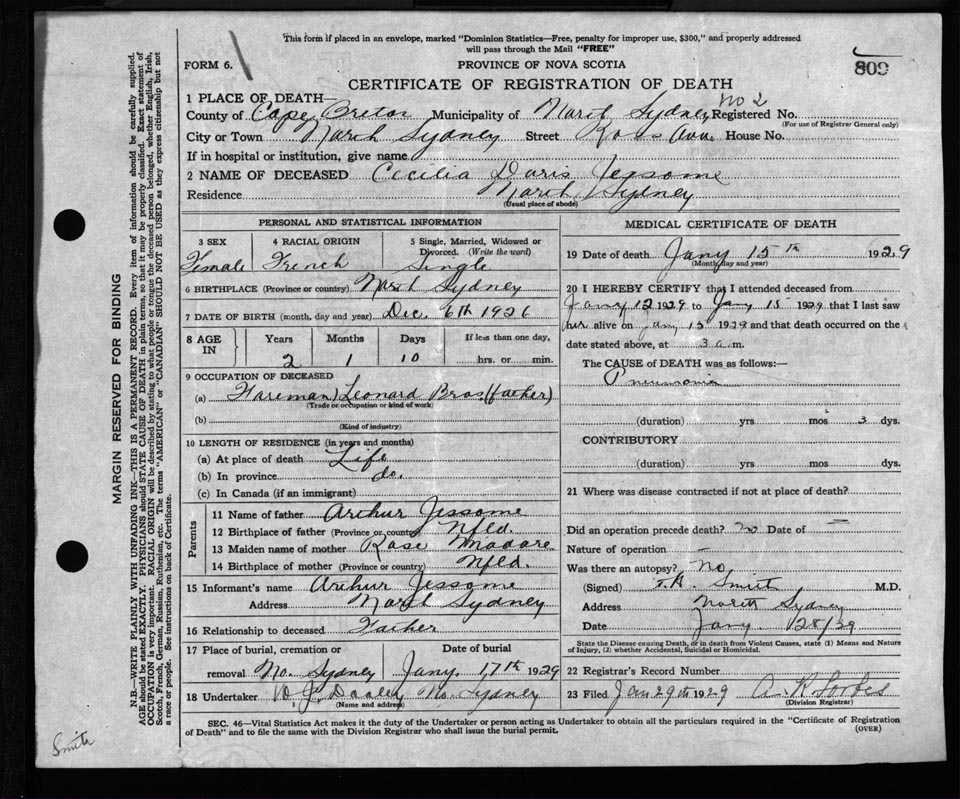 This form if placed in an envelope, marked "Dominion Statistics—Free, penalty for improper use, $300," and properly addressed
will pass through the Mail "FREE"
FORM 6.
PROVINCE OF NOVA SCOTIA
809
CERTIFICATE OF REGISTRATION OF DEATH
1 PLACE OF DEATH—
County of Cape Breton Municipality of North Sydney Registered No. No 2
(For use of Registrar General only)
City or Town North Sydney Street Ave. House No.
If in hospital or institution, give name
2 NAME OF DECEASED Cecilia Doris Jessome
Residence North Sydney
(Usual place of abode)
PERSONAL AND STATISTICAL INFORMATION
3 SEX 4 RACIAL ORIGIN 5 Single, Married, Widowed or
Divorced. (Write the word)
Female French Single
6 BIRTHPLACE (Province or country) North Sydney
7 DATE OF BIRTH (month, day and year) Dec. 6th 1926
8 AGE IN Years Months Days If less than one day,
2 1 10 hrs. or min.
9 OCCUPATION OF DECEASED
(a) Foreman Leonard Bros (father)
(Trade or occupation or kind of work)
(b)
(Kind of industry)
10 LENGTH OF RESIDENCE (in years and months)
(a) At place of death Life
(b) In province do.
(c) In Canada (if an immigrant)
Parents
11 Name of father Arthur Jessome
12 Birthplace of father (Province or country) Nfld.
13 Maiden name of mother Rose Madore
14 Birthplace of mother (Province or country) Nfld.
15 Informant's name Arthur Jessome
Address North Sydney
16 Relationship to deceased Father
17 Place of burial, cremation or Date of burial
removal No. Sydney Jany. 17th 1929
18 Undertaker J. Dooley No. Sydney
(Name and address)
MEDICAL CERTIFICATE OF DEATH
19 Date of death Jany 15th 1929
(Month, day and year)
20 I HEREBY CERTIFY that I attended deceased from
Jany 12 1929 to Jany 15 1929 that I last saw
her alive on Jany 15 1929 and that death occurred on the
date stated above, at 3 a.m.
The CAUSE of DEATH was as follows:—
Pneumonia
(duration) yrs mos 3 dys.
CONTRIBUTORY
(duration) yrs mos dys.
21 Where was disease contracted if not at place of death?
Did an operation precede death? no Date of —
Nature of operation —
Was there an autopsy? No.
(Signed) Smith M.D.
Address North Sydney
Date Jany. 28/29
State the Disease causing Death, or in death from Violent Causes, state (1) Means and Nature
of Injury, (2) whether Accidental, Suicidal or Homicidal.
22 Registrar's Record Number
23 Filed Jan 29th 1929 Forbes
(Division Registrar)
SEC. 46—Vital Statistics Act makes it the duty of the Undertaker or person acting as Undertaker to obtain all the particulars required in the "Certificate of Registration
of Death" and to file the same with the Division Registrar who shall issue the burial permit. (OVER)
MARGIN RESERVED FOR BINDING
N.B.—WRITE PLAINLY WITH UNFADING INK—THIS IS A PERMANENT RECORD. Every item of information should be carefully supplied.
AGE should be stated EXACTLY. PHYSICIANS should STATE CAUSE OF DEATH in plain terms, so that it may be properly classified. Exact statement of
OCCUPATION is very important. RACIAL ORIGIN will be described by stating to what people or tongue the deceased person belonged, whether English, Irish,
Scotch, French, German, Russian, Ruthenian, etc. The terms "AMERICAN" or "CANADIAN" SHOULD NOT BE USED as they express citizenship but not
a race or people. See instructions on back of Certificate.
Smith